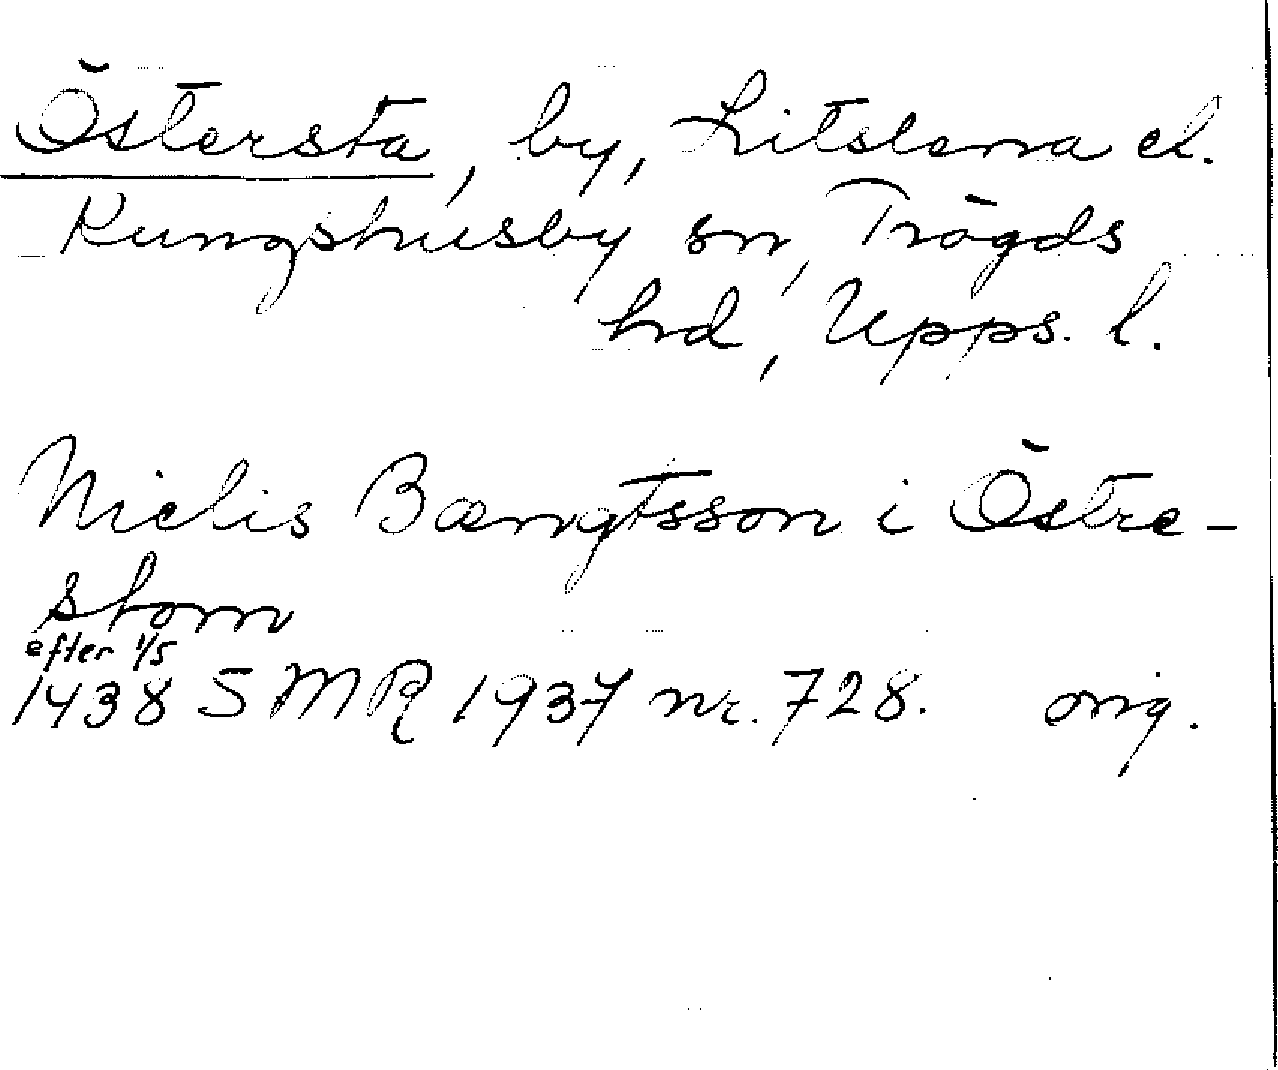 Östersta, by, Litslena el.
Kungshusby sn, Trögds
hrd, Upps. l.
Nielis Bængtsson i Östre-
stom
efter 1/5
1438 SMR 1937 nr. 728. orig.